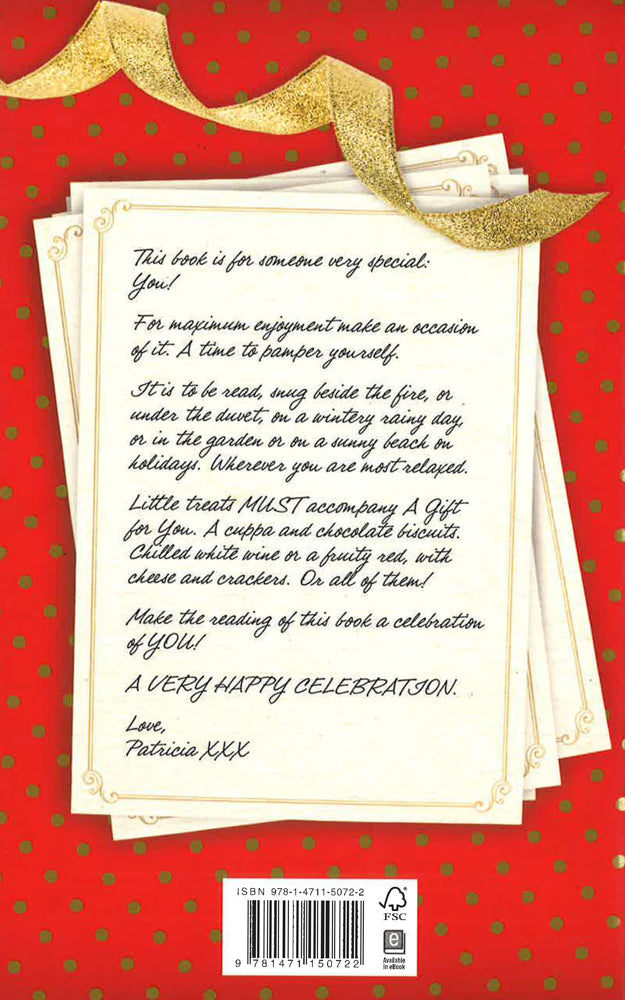 This book is for someone very special:
You!
For maximum enjoyment make an occasion
of it. A time to pamper yourself.
It is to be read, snug beside the fire, or
under the duvet, on a wintery rainy day,
or in the garden or on a sunny beach on
holidays. Wherever you are most relaxed.
Little treats MUST accompany A Gift
for You. A cuppa and chocolate biscuits.
Chilled white wine or a fruity red, with
cheese and crackers. Or all of them!
Make the reading of this book a celebration
of YOU!
A VERY HAPPY CELEBRATION.
Love,
Patricia XXX
ISBN 978-1-4711-5072-2
9 781471 150722
FSC
e
Available
in eBook